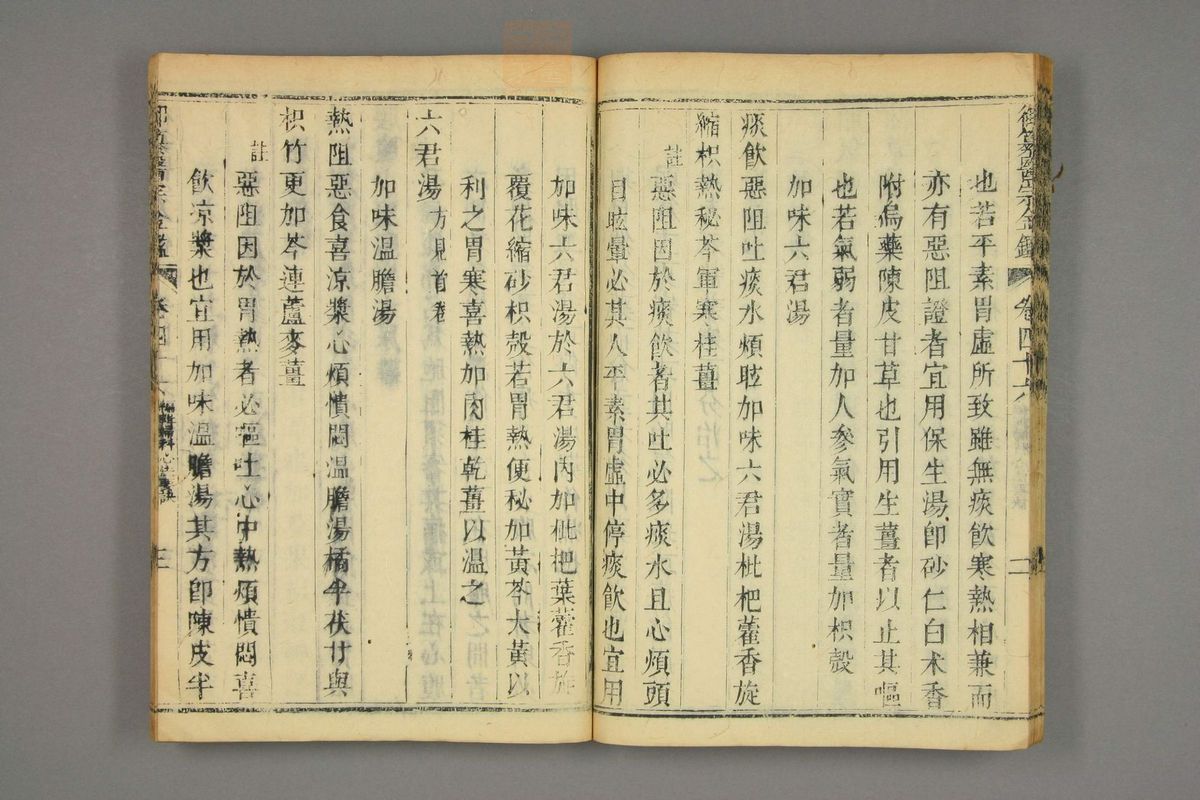 御纂醫宗金鑑
卷四十六
二
也若平素胃虛所致雖無痰飲寒熱相兼而
亦有惡阻證者宜用保生湯卽砂仁白朮香
附烏藥陳皮甘草也引用生薑者以止其嘔
也若氣弱者量加人參氣實者量加枳殼
加味六君湯
痰飲惡阻吐痰水煩眩加味六君湯枇杷藿香旋
縮枳熱秘芩軍寒桂薑
註
惡阻因於痰飲者其吐必多痰水且心煩頭
目眩暈必其人平素胃虛中停痰飲也宜用
加味六君湯於六君湯內加枇杷葉藿香旋
覆花縮砂枳殼若胃熱便秘加黃芩大黃以
利之胃寒喜熱加肉桂乾薑以溫之
六君湯 方見首卷
加味溫膽湯
熱阻惡食喜涼漿心煩憒悶溫膽湯橘半茯甘與
枳竹更加芩連蘆麥薑
註
惡阻因於胃熱者必嘔吐心中熱煩憒悶喜
飲涼漿也宜用加味溫膽湯其方卽陳皮半
卷四
三